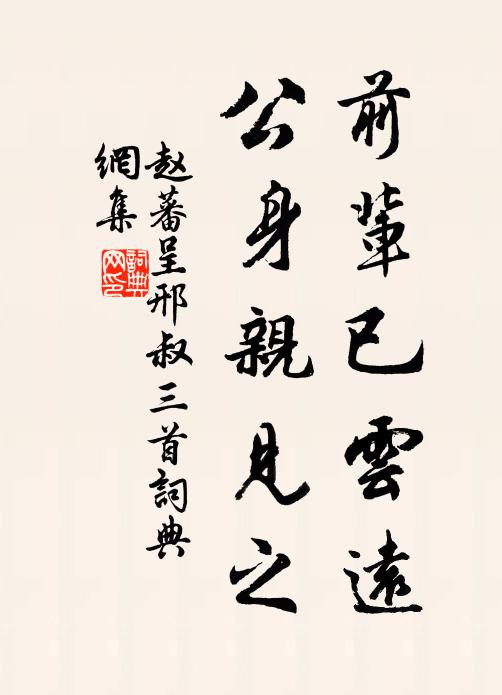 前輩已雲遠
公身親見之
赵蕃呈邢叔三首詞典
網集
詞典
网印